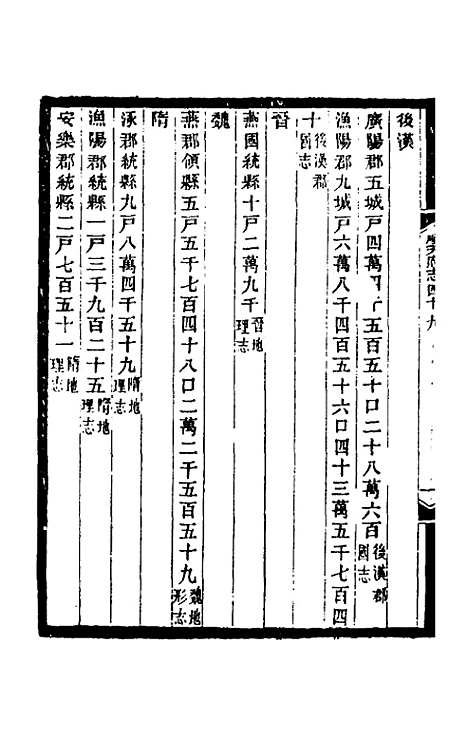 後漢
廣陽郡五城戸四萬四千五百五十口二十八萬六百後漢郡國志
漁陽郡九城戸六萬八千四百五十六口四十三萬五千七百四
十後漢郡國志
晉
燕國統縣十戸二萬九千晉地理志
魏
燕郡領縣五戸五千七百四十八口二萬二千五百五十九魏地形志
隋
涿郡統縣九戸八萬四千五十九隋地理志
漁陽郡統縣一戸三千九百二十五隋地理志
安樂郡統縣二戸七百五十一隋地理志
志四十九